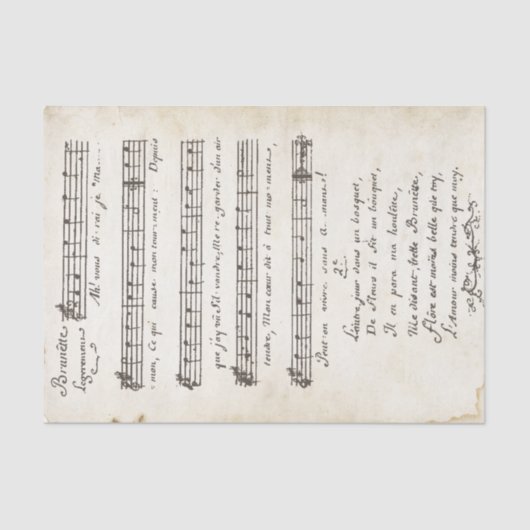 Brunètte
Legerement
Ah! vous di-rai je Ma....
man, Ce qui cause mon tour-ment: Depuis
que j'ay vû Sil-vandre, Me re-garder d'un air
tendre, Mon cœur dit à tout mo-ment,
Peut-on vivre sans a-mant?
2e
L'autre jour dans un bosquet,
De fleurs il fit un bouquet,
Il en para ma houlètte,
Me disant, belle Brunètte,
Flore est moins belle que toy,
L'Amour moins tendre que moy.